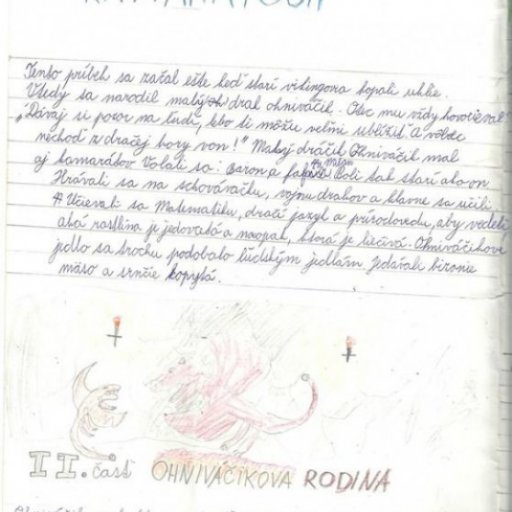 Tento príbeh sa začal ešte keď starí vikingovia kopali uhlie.
Vtedy sa narodil malý drak ohniváčik. Otec mu vždy hovorieval
„Dávaj si pozor na ľudí, lebo ti môžu veľmi ublížiť a vôbec
nichoď z dračej hory von!" Malý dráčik Ohniváčik mal
aj kamarátov Volali sa: a boli tak starí ako on
Hrávali sa na schovávačku, vojnu drakov a hlavne sa učili.
Učievali sa Matematiku, dračí jazyk a prírodovedu, aby vedeli
aká rastlina je jedovatá a naopak, ktorá je liečivá. Ohniváčikove
jedlo sa trochu podobalo ľudským jedlám. Jedávali bizonie
mäso a srnčie kopytá.
II. časť OHNIVÁČIKOVA RODINA